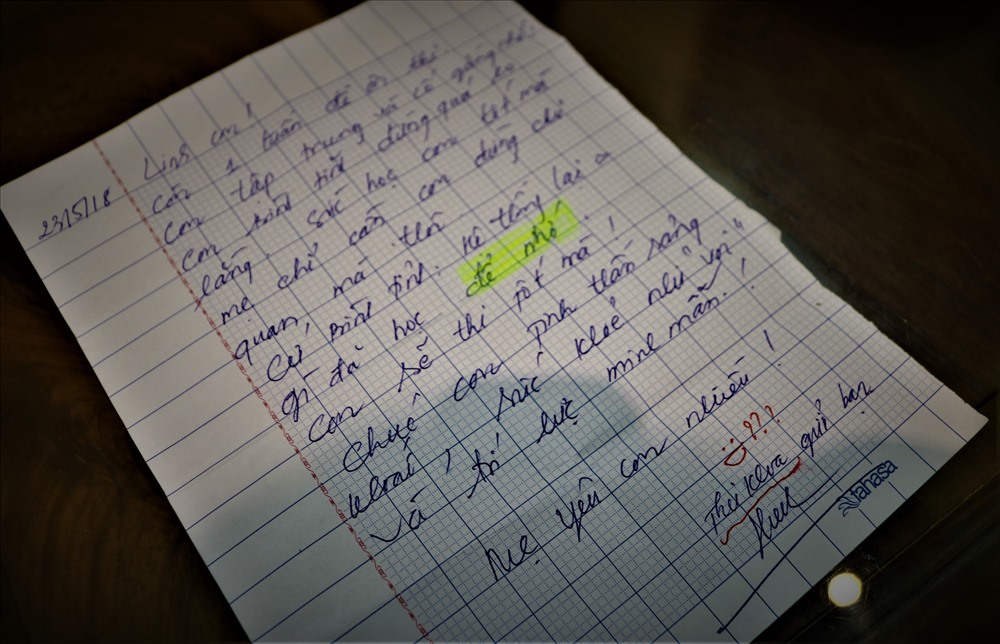 23/5/18
Linh con!
Còn 1 tuần để ôn thi
Con tập trung và cố gắng nhé.
Con bình tĩnh đừng quá lo
lắng. Sức học con tốt mà
mẹ chỉ cần con đừng chủ
quan mà thôi.
Cứ bình tĩnh. Hệ thống lại
gì đã học để nhớ.
Con sẽ thi tốt mà!
Chúc con tinh thần sảng
khoái, sức khoẻ như "voi"
và trí lực minh mẫn.!
Mẹ yêu con nhiều!
???
Thời khoá quí bạn
Vanasa